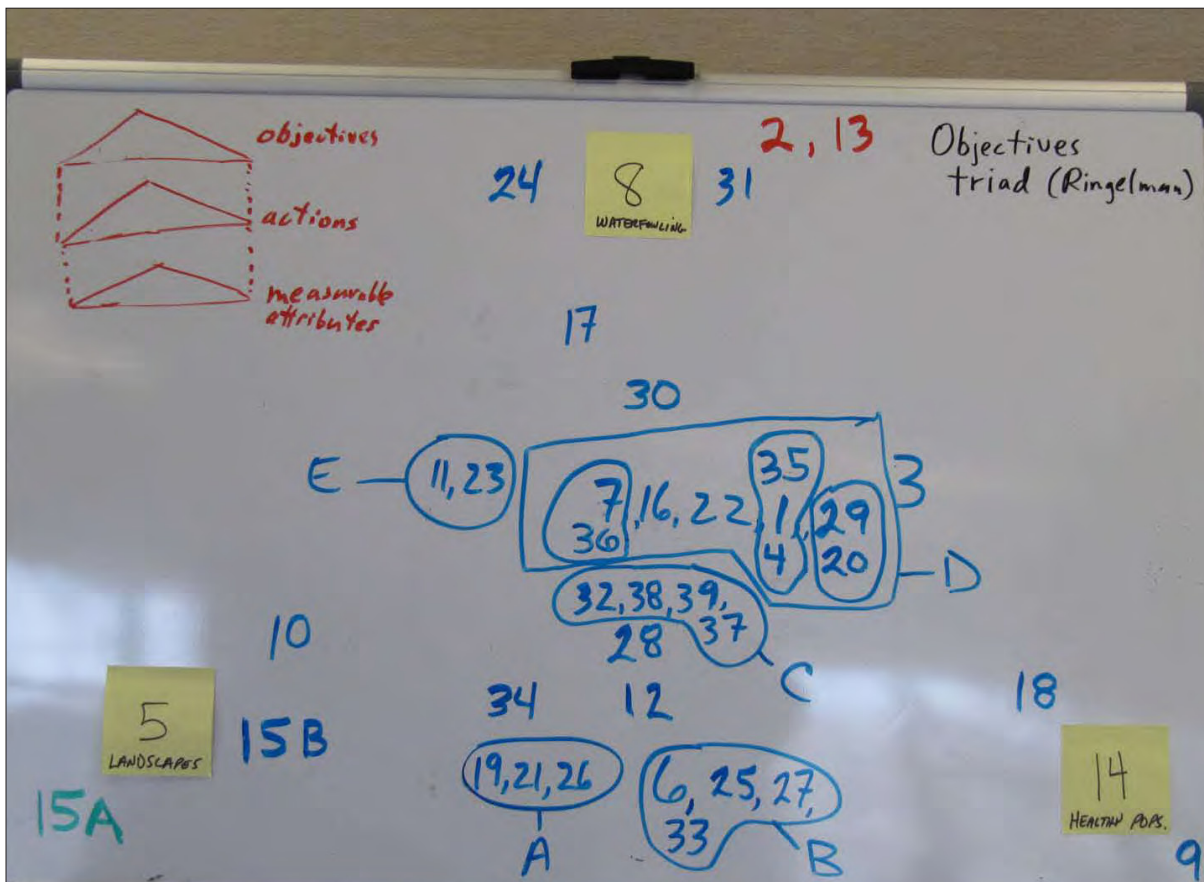 objectives
actions
measurable
attributes
24
8
WATERFOWLING
31
2, 13
Objectives
triad (Ringelman)
17
30
E
11, 23
7
36
, 16, 22,
35
1,
4
29
20
3
D
32, 38, 39,
37
28
C
10
34
12
18
5
LANDSCAPES
15B
15A
19, 21, 26
A
6, 25, 27,
33
B
14
HEALTHY POPS.
9